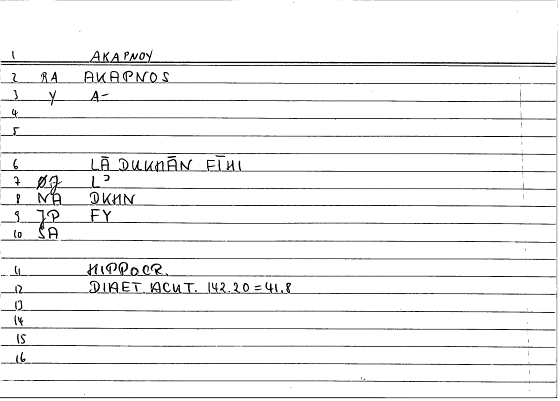 1 AKAPNOY
2 RA AKAPNOS
3 Y A-
4
5
6 LĀ DUKHĀN FĪHI
7 ØJ Lↄ
8 NA DKHN
9 JP FY
10 SA
11 HIPPOCR.
12 DIAET. ACUT. 142.20=41.8
13
14
15
16